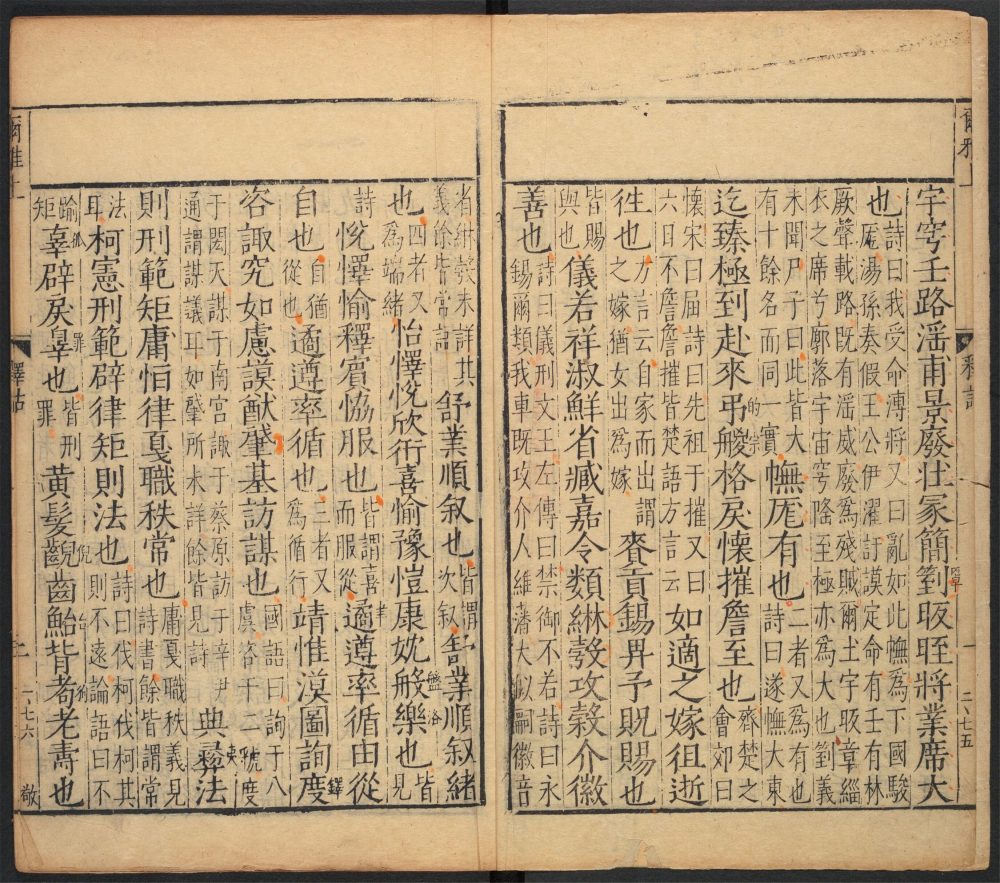 爾雅上
釋詁
一
二、七五
宇穹壬路淫甫景廢壯冢簡箌昄晊將業席大
也詩曰我受命溥將又曰亂如此幠為下國駿厖湯孫奏假王公伊濯訏謨定命有壬有林
厥聲載路既有淫威廢為殘賊爾土宇昄章緇衣之席兮廓落宇宙穹隆至極亦為大也箌義
未聞尸子曰此皆大有十餘名而同一實幠厖有也二者又為有也詩曰遂幠大東
迄臻極到赴來弔艐格戾懷摧詹至也齊楚之會郊曰
懷宋曰屆詩曰先祖于摧又曰六日不詹詹摧皆楚語方言云如適之嫁徂逝
往也方言云自家而出謂之嫁猶女出為嫁賚貢錫畀予貺賜也
皆賜與也儀若祥淑鮮省臧嘉令類綝彀攻穀介徽
善也詩曰儀刑文王左傳曰禁御不若詩曰永錫爾類我車既攻介人維藩大姒嗣徽音
省綝彀未詳其義餘皆常語舒業順敘也皆謂次敘舒業順敘緒
也四者又為端緒怡懌悅欣衎喜愉豫愷康妉般樂也皆見
詩悅懌愉釋賓協服也皆謂喜而服從遹遵率循由從
自也自猶從也遹遵率循也三者又為循行靖惟漠圖詢度
咨諏究如慮謨猷肇基訪謀也國語曰詢于八虞咨于二虢度
于閎夭謀于南宮諏于蔡原訪于辛尹通謂謀議耳如肇所未詳餘皆見詩典彝法
則刑範矩庸恒律戛職秩常也庸戛職秩義見詩書餘皆謂常
法耳柯憲刑範辟律矩則法也詩曰伐柯伐柯其則不遠論語曰不
踰矩辜辟戾辠也皆刑罪黃髮齯齒鮐背耇老壽也
爾雅上
釋詁
一、七六
敬